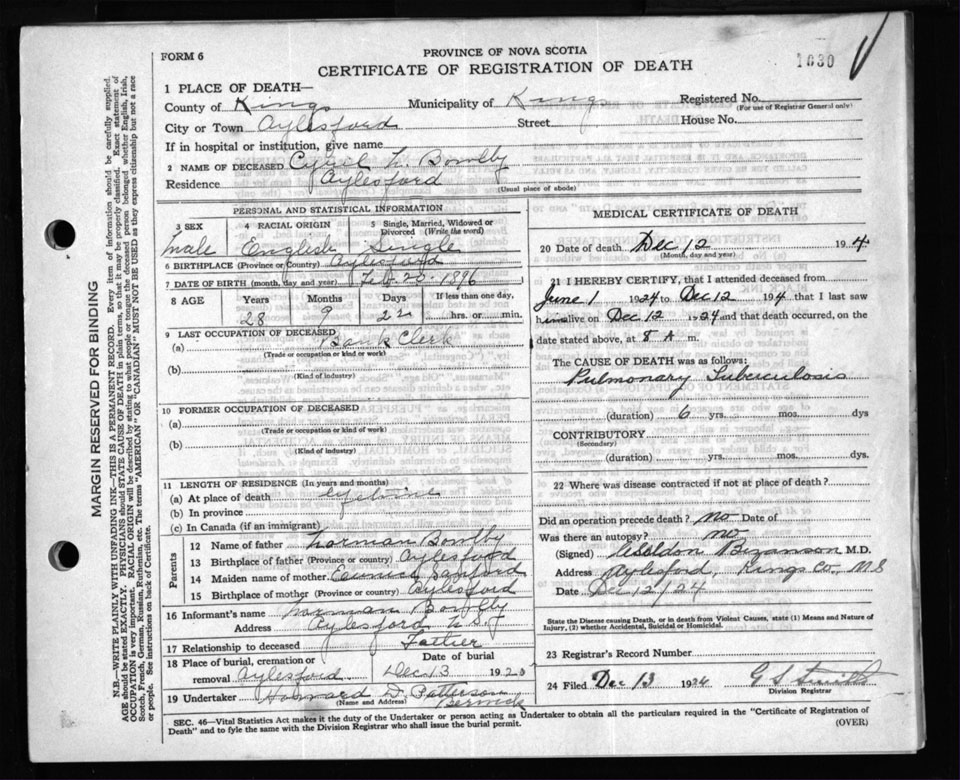 FORM 6
PROVINCE OF NOVA SCOTIA
1030
CERTIFICATE OF REGISTRATION OF DEATH
1 PLACE OF DEATH—
County of Kings Municipality of Kings Registered No.
(For use of Registrar General only)
City or Town Aylesford Street House No.
If in hospital or institution, give name
2 NAME OF DECEASED L. Bowlby
Residence Aylesford
(Usual place of abode)
PERSONAL AND STATISTICAL INFORMATION
3 SEX 4 RACIAL ORIGIN 5 Single, Married, Widowed or Divorced (Write the word)
Male English Single
6 BIRTHPLACE (Province or Country) Aylesford
7 DATE OF BIRTH (month, day and year) Feb 20 1896
8 AGE Years Months Days If less than one day,
28 9 22 hrs. or min.
9 LAST OCCUPATION OF DECEASED
(a) Bank Clerk
(Trade or occupation or kind or work)
(b)
(Kind of industry)
10 FORMER OCCUPATION OF DECEASED
(a)
(Trade or occupation or kind of work)
(b)
(Kind of industry)
11 LENGTH OF RESIDENCE (In years and months)
(a) At place of death
(b) In province
(c) In Canada (if an immigrant)
Parents
12 Name of father Norman Bowlby
13 Birthplace of father (Province or country) Aylesford
14 Maiden name of mother Eunice Sanford
15 Birthplace of mother (Province or country) Aylesford
16 Informant's name Norman Bowlby
Address Aylesford N.S.
17 Relationship to deceased Father
18 Place of burial, cremation or removal Aylesford
Date of burial Dec 13 192
19 Undertaker Howard D. Patterson
(Name and Address) Berwick
MEDICAL CERTIFICATE OF DEATH
20 Date of death Dec 12 1924
(Month, day and year)
21 I HEREBY CERTIFY, that I attended deceased from
June 1 1924 to Dec 12 1924 that I last saw
him alive on Dec 12 1924 and that death occurred, on
date stated above, at 8 A m.
The CAUSE OF DEATH was as follows:
Pulmonary Tuberculosis
(duration) 6 yrs. mos. dys
CONTRIBUTORY
(Secondary)
(duration) yrs. mos. dys.
22 Where was disease contracted if not at place of death?
Did an operation precede death? no Date of
Was there an autopsy? no
(Signed) Bezanson M.D.
Address Aylesford, Kings Co, N.S
Date Dec 12/24
State the Disease causing Death, or in death from Violent Causes, state (1) Means and Nature of
Injury, (2) whether Accidental, Suicidal or Homicidal.
23 Registrar's Record Number
24 Filed Dec 13 1924
Division Registrar
SEC. 46—Vital Statistics Act makes it the duty of the Undertaker or person acting as Undertaker to obtain all the particulars required in the "Certificate of Registration of
Death" and to fyle the same with the Division Registrar who shall issue the burial permit.
(OVER)
MARGIN RESERVED FOR BINDING
N.B.—WRITE PLAINLY WITH UNFADING INK—THIS IS A PERMANENT RECORD. Every item of information should be carefully supplied.
AGE should be stated EXACTLY. PHYSICIANS should STATE CAUSE OF DEATH in plain terms, so that it may be properly classified. Exact statement of
OCCUPATION is very important. RACIAL ORIGIN will be described by stating to what people or tongue the deceased person belonged whether English, Irish,
Scotch, French, German, Russian, Ruthenian, etc. The terms "AMERICAN" OR "CANADIAN" MUST NOT BE USED as they express citizenship but not a race
or people. See instructions on back of Certificate.